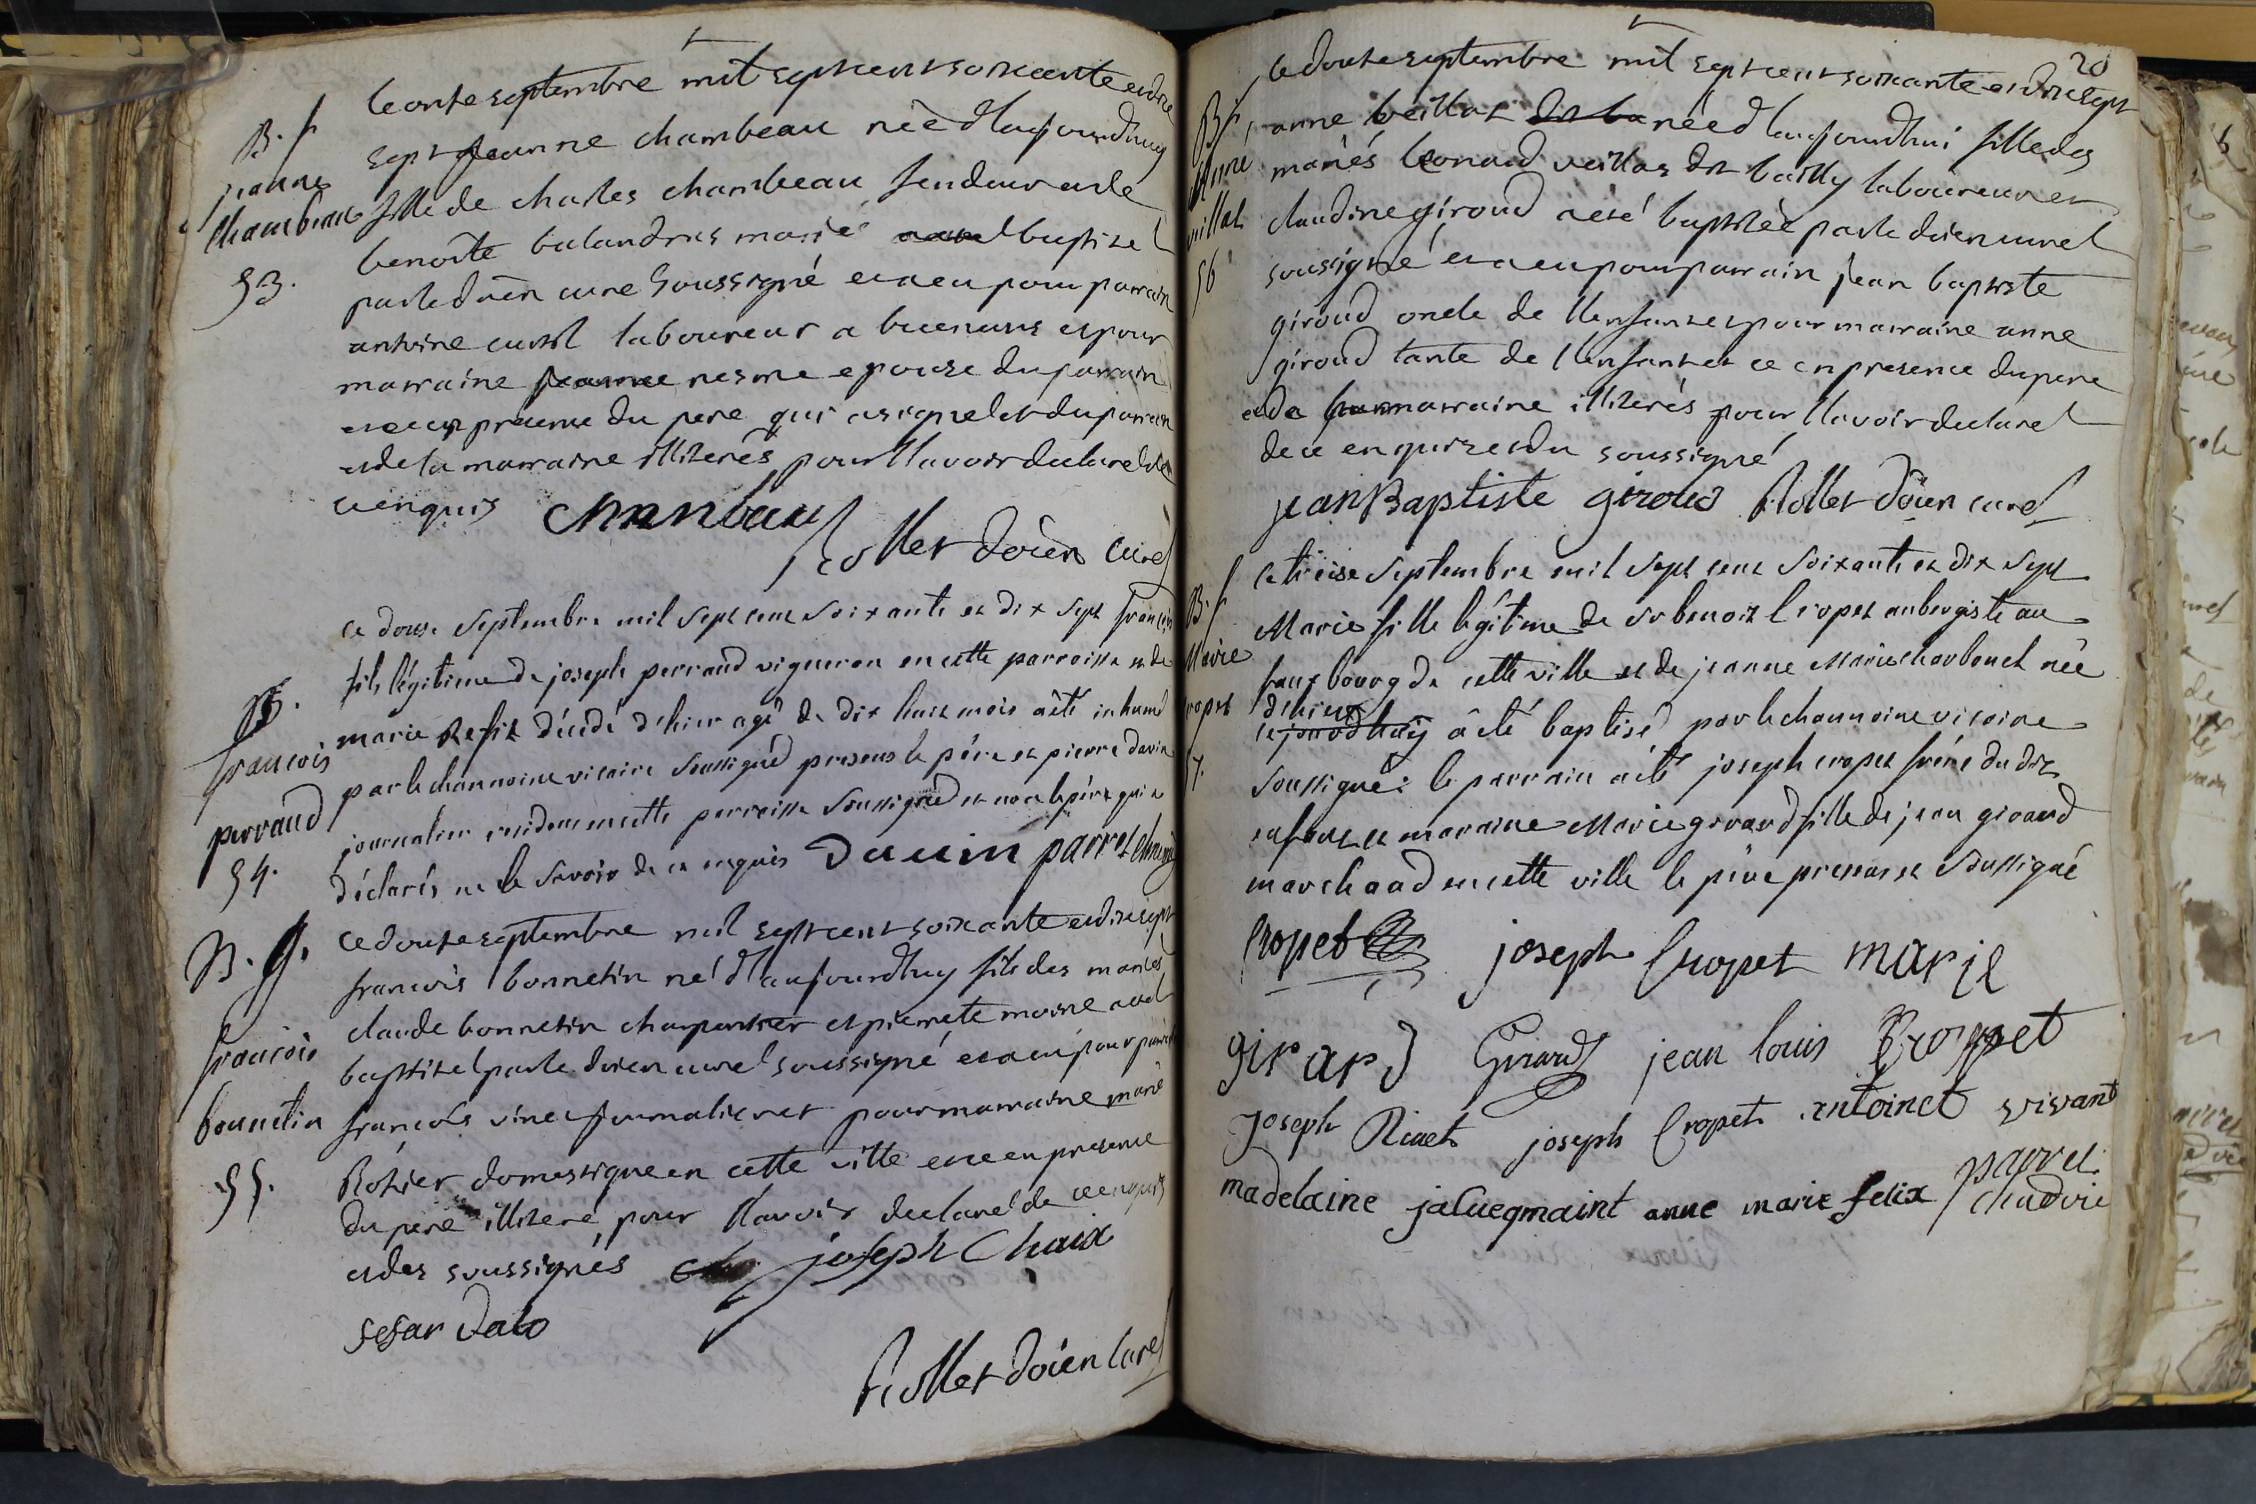 B. f
jeanne
Chambeau
53.
le onze septembre mil sept cent soixante et dix
sept jeanne chambeau néè d'laujourdhuy
fille de charles chambeau fendeur et de
benoîte balandras mariés baptisel
par le doïen curé soussigné et a eu pour parrain
antoine laboureur a et pour
marraine jeanne nesme epouse du parrain
et ce en presence du pere qui a signel et du parrain
et de la marraine illiterés pour llavoir declarel de
ce enquis Chanbau
Rollet doïen curé
B.
francois
perraud
54.
ce douse septembre mil sept cent soixante et dix sept francois
fils légitime de joseph perraud vigneron en cette parroisse et de
marie décedé d'hier agé de dix huit mois a êté inhumé
par le channoine vicaire soussigné presens le pére et pierre dauin
journalier residant en cette parroisse soussigné et non le pére qui a
déclarés ne le savoir de ce enquis Dauin parret ch
B. g.
francois
bonnetin
55.
ce douze septembre mil sept cent soixante et dix sept
francois bonnetin né d'laujourdhuy fils des mariés
claude bonnetin charpentier et pierrete moine a eté
baptisel par le doïen curel soussigné et a eu pour parrain
francois journalier et pour marraine marie
Rotier domestique en cette ville et ce en presence
du pere illiteré pour llavoir declarel de ce enquis
et des soussignés joseph Chaix
sesar Dalo
Rollet doïen curé
20
B f
Anne
veillat
56
ce douze septembre mil sept cent soixante et dix sept
anne veillas néè d'laujourdhui fille des
mariés leonard veillas dit bailly laboureur et
claudine giroud a eté baptisèe par le doïen curel
soussigné et a eu pour parrain jean baptiste
giroud oncle de llenfant et pour marraine anne
giroud tante de llenfant et ce en presence du pere
et de marraine illiterés pour llavoir declarel
de ce enquis et du soussigné
jean Baptiste giroud Rollet doïen curel
B. f
Marie
cropet
57.
ce treise septembre mil sept cent soixante et dix sept
Marie fille légitime de sr benoit Cropet aubergiste au
fauxbourg de cette ville et de jeanne Marie charbonel née
d'hier
cejourdhuy a été baptisé par le channoine vicaire
soussigné: le parrain a été joseph cropet frére du dit
enfant et maraine Marie girard fille de jean girard
marchand en cette ville le pére present et soussigné
Cropet joseph Cropet marie
girard Girard jean louis Cropet
joseph Rivet joseph Cropet antoinet vivant
madelaine jalucqmaint anne marie felix parret